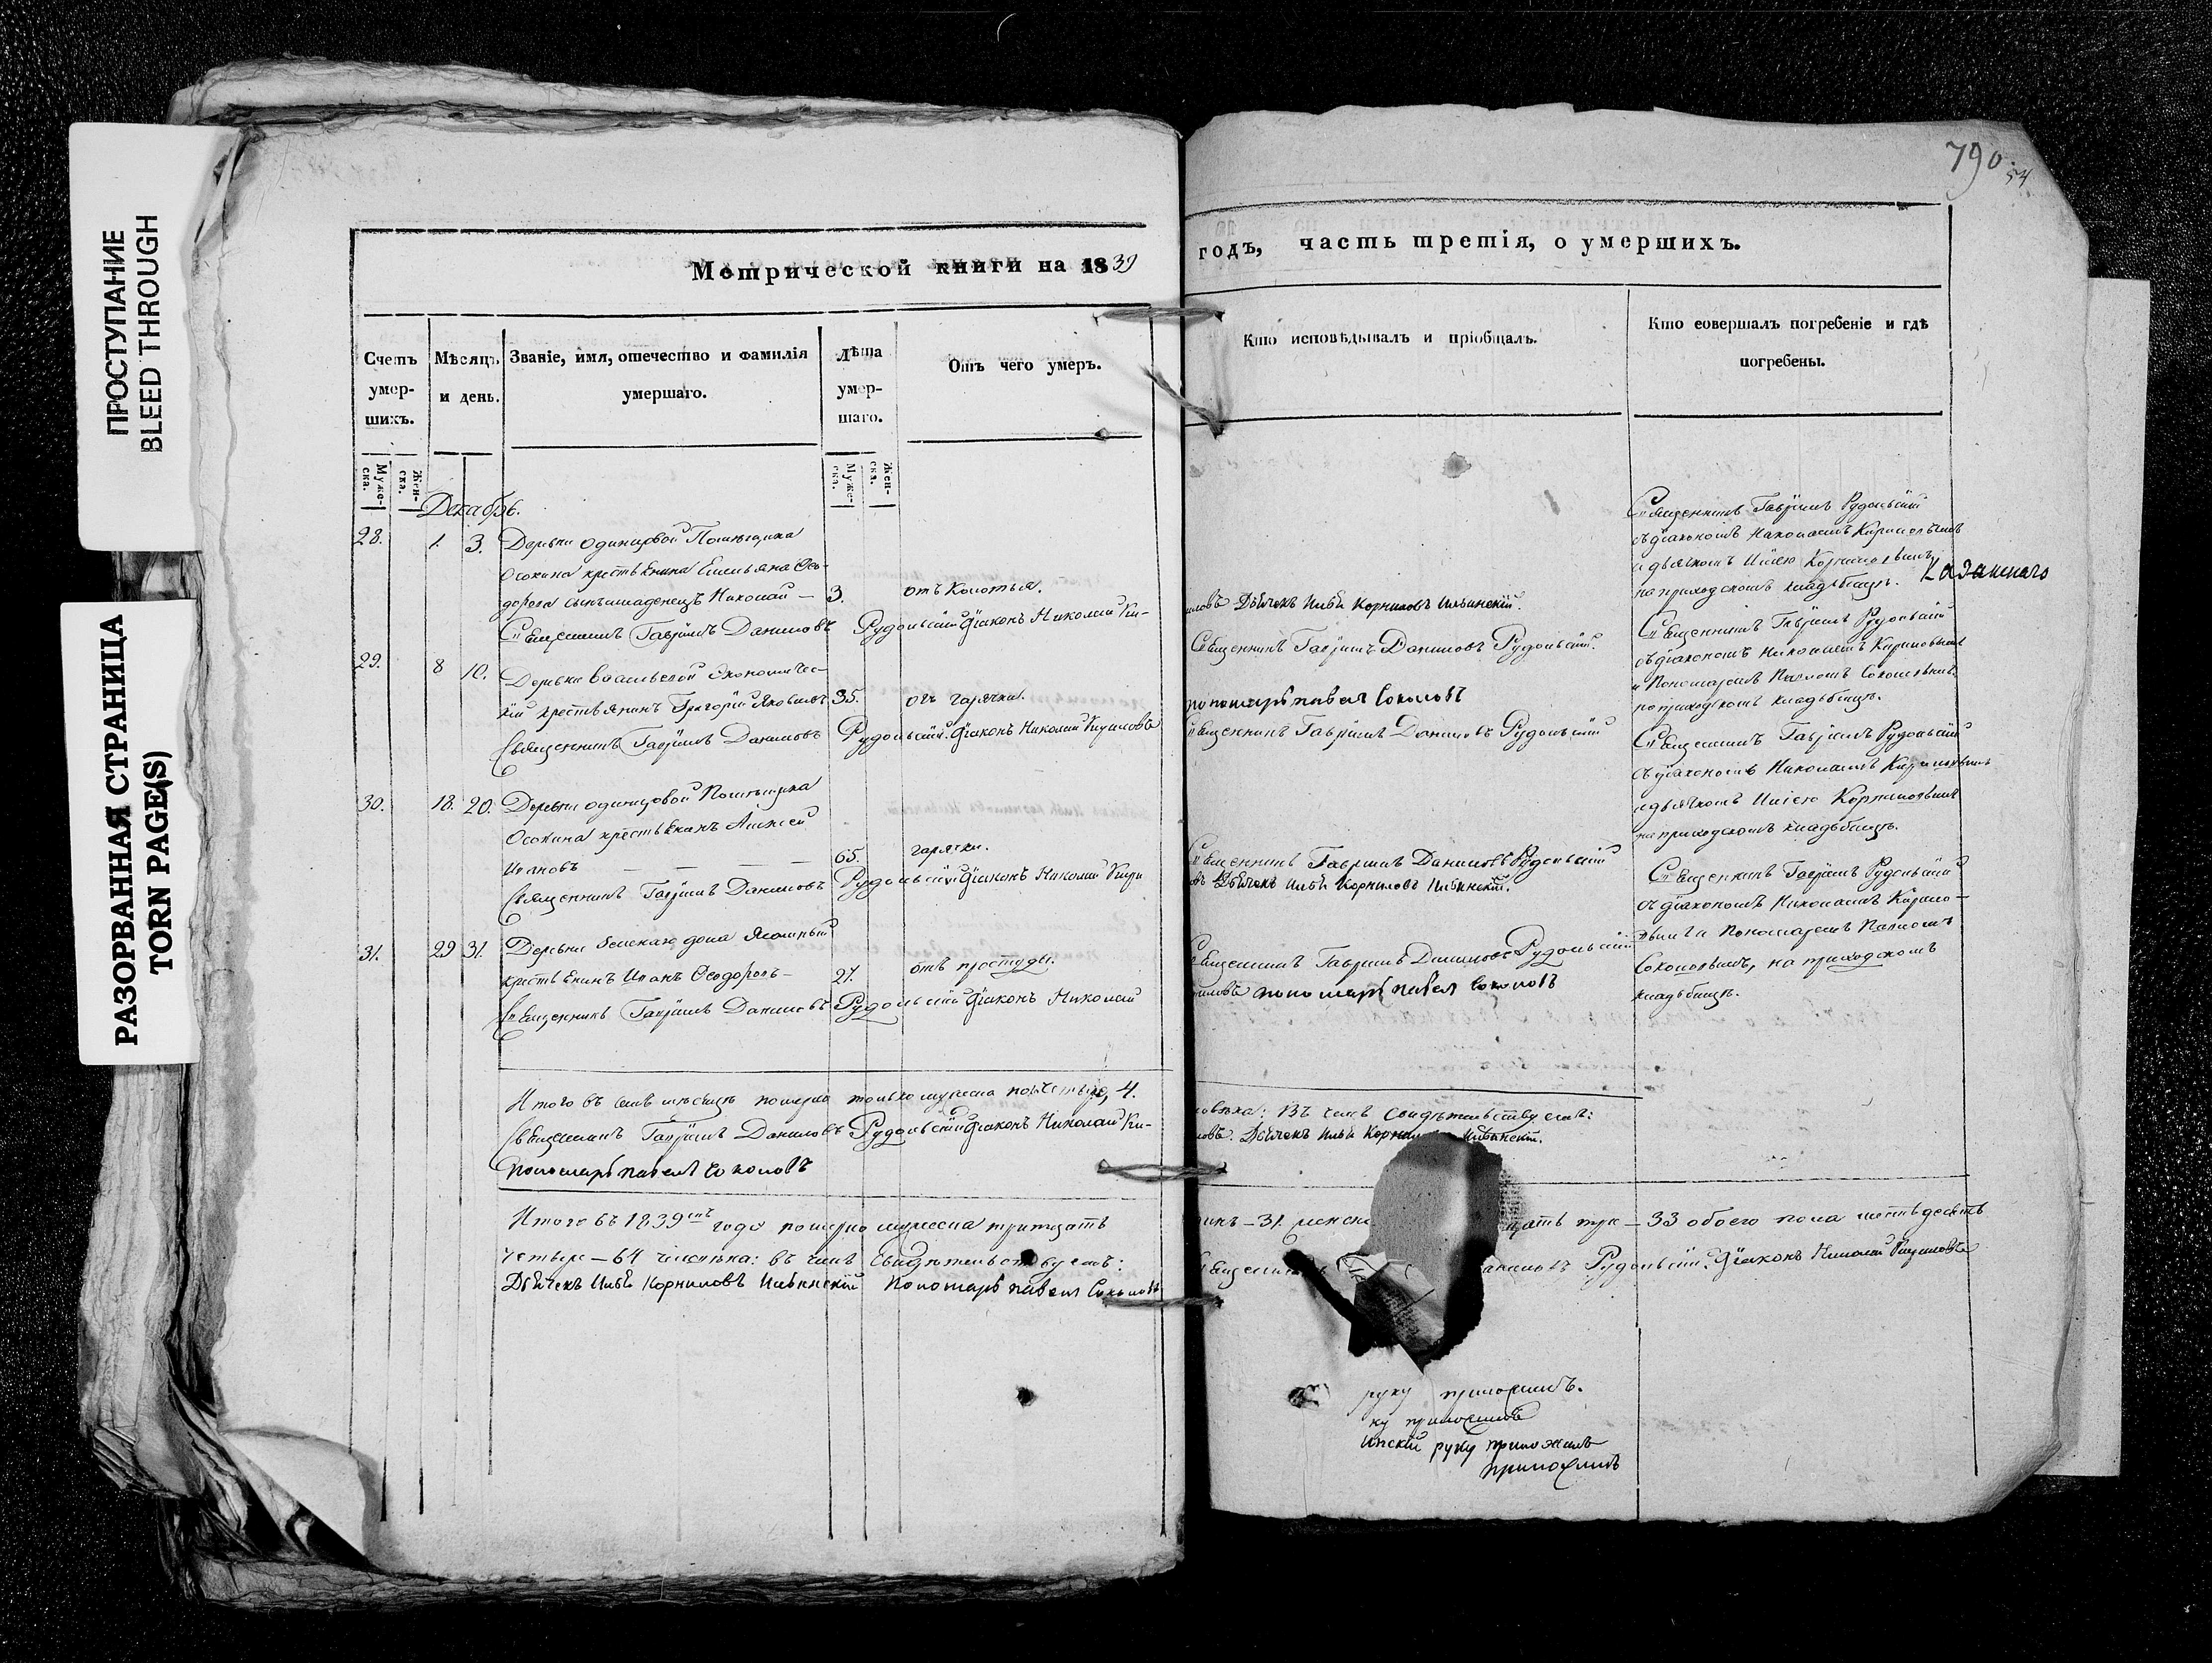 ПРОСТУПАНИЕ
BLEED THROUGH
РАЗОРВАННАЯ СТРАНИЦА
TORN PAGE(S)
Метрической книги на 1839
Счетъ умер-шихъ.
Мѣсяцъ и день.
Званіе, имя, отечество и фамилія умершаго.
Лѣта умер-шаго.
Отъ чего умеръ.
Муже-ска.
Жен-ска.
Муже-ска.
Жен-ска.
Декабрь.
28. 1. 3. Деревни Одинцовой Помѣщика
Осокина крестьянина Емельяна Ѳео-
дорова сынъ младенецъ Николай — 3.
Священникъ Гавріилъ Даниловъ Рудольскій Діаконъ Николай Ки-
29. 8 10. Деревни Васильевой Экономичес-
кій крестьянинъ Григорій Яковлевъ 35. отъ горячки.
Священникъ Гавріилъ Даниловъ Рудольскій. Діаконъ Николай Кириловъ
30. 18. 20. Деревни Одинцовой Помѣщика
Осокина крестьянинъ Алексей
Ивановъ — — — 65. горячки.
Священникъ Гавріилъ Даниловъ Рудольскій Діаконъ Николай Кири
31. 29 31. Деревни
крестьянинъ Иванъ Ѳеодоровъ — 27. отъ простуды.
Священникъ Гавріилъ Даниловъ Рудольскій Діаконъ Николай
Итого въ семъ мѣсяцѣ померло только мужеска 4.
Священникъ Гавріилъ Даниловъ Рудольскій Діаконъ Николай Ки-
Пономарь Павелъ Соколовъ
Итого въ 1839мъ году померло мужеска тритцать
четыре — 64 человѣка: въ чемъ свидѣтельствуемъ:
Дьячекъ Илья Корниловъ Ильинскій Пономарь Павелъ Соколовъ
790
54
годъ, часть третія, о умершихъ.
Кто исповѣдывалъ и пріобщалъ.
Кто совершалъ погребеніе и гдѣ погребены.
иловъ Дьячекъ Илья Корниловъ Ильинскій.
Священникъ Гавріилъ Даниловъ Рудольскій.
пономарь павелъ Соколовъ
Священникъ Гавріилъ Даниловъ Рудольскій
Священникъ Гавріилъ Даниловъ Рудольскій
овъ Дьячекъ Илья Корниловъ Ильинскій.
Священникъ Гавріилъ Даниловъ Рудольскій
риловъ пономарь павелъ Соколовъ
ловѣка: Въ чемъ свидѣтельствуемъ:
ловъ. Дьячекъ Илья Ильинскій.
Священникъ Гавріилъ Рудольскій
съ діакономъ Николаемъ Кириловымъ
и дьячкомъ Ильею Корниловымъ
на приходскомъ кладбищѣ. Казанскаго
Священникъ Гавріилъ Рудольскій
съ діакономъ Николаемъ Кириловымъ
и Пономаремъ Павломъ Соколовымъ
на приходскомъ кладбищѣ.
Священникъ Гавріилъ Рудольскій
съ діакономъ Николаемъ Кириловымъ
и дьячкомъ Ильею Корниловымъ
на приходскомъ кладбищѣ.
Священникъ Гавріилъ Рудольскій
съ діакономъ Николаемъ Кирило-
вымъ и Пономаремъ Павломъ
Соколовымъ, на приходскомъ
кладбищѣ.
динъ — 31. женска цать три — 33 обоего пола шестьдесятъ
Рудольскій. Діаконъ Николай Кириловъ
руку приложилъ.
ку приложилъ
инскій руку приложилъ
приложилъ